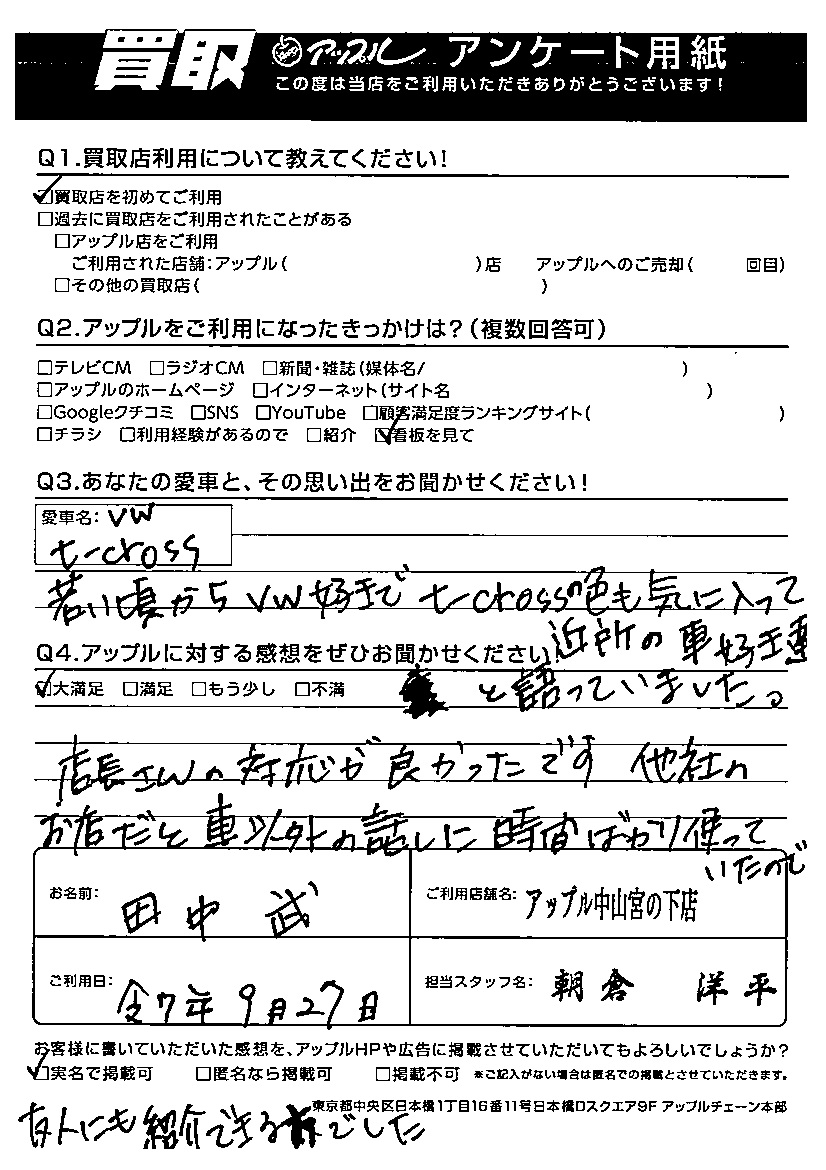 買取 アップル アンケート用紙
この度は当店をご利用いただきありがとうございます!
Q1.買取店利用について教えてください!
☑買取店を初めてご利用
□過去に買取店をご利用されたことがある
□アップル店をご利用
ご利用された店舗:アップル( )店 アップルへのご売却( 回目)
□その他の買取店( )
Q2.アップルをご利用になったきっかけは?(複数回答可)
□テレビCM □ラジオCM □新聞・雑誌(媒体名/ )
□アップルのホームページ □インターネット(サイト名 )
□Googleクチコミ □SNS □YouTube □顧客満足度ランキングサイト( )
□チラシ □利用経験があるので □紹介 ☑看板を見て
Q3.あなたの愛車と、その思い出をお聞かせください!
愛車名: VW
t-cross
若い頃からVW好きで t-crossの色も気に入って
近所の車好き達
と語っていました。
Q4.アップルに対する感想をぜひお聞かせください
☑大満足 □満足 □もう少し □不満
店長さんの対応が良かったです 他社の
お店だと車以外の話しに時間ばかり使って
いたので
お名前: 田中 武
ご利用店舗名: アップル中山宮の下店
ご利用日: 令7年9月27日
担当スタッフ名: 朝倉 洋平
お客様に書いていただいた感想を、アップルHPや広告に掲載させていただいてもよろしいでしょうか?
☑実名で掲載可 □匿名なら掲載可 □掲載不可 ※ご記入がない場合は匿名での掲載とさせていただきます。
東京都中央区日本橋1丁目16番11号日本橋Dスクエア9F アップルチェーン本部
友人にも紹介できる でした